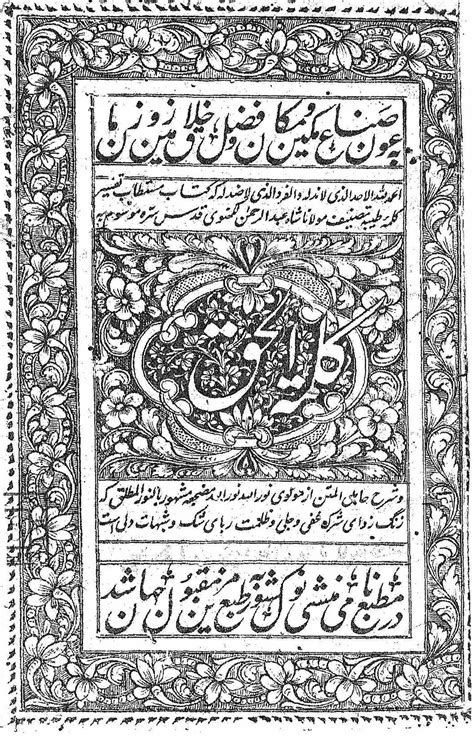 بعون صناع مکین و مکان و فضل خلاق زمین و زمن
الحمد لله الاحد الذی لا ند له والفرد الذی لا ضد له که کتاب مستطاب تفسیر
کلمه طیبه تصنیف مولانا شاه عبدالرحمن لکهنوی قدس سره موسوم به
کلمة الحق
و شرح حامل المتن از مولوی نور الله مشهور بالنور المطلق که
زنگ زدای شرک خفی و جلی و ظلمت ربای شک و شبهات دلی است
در مطبع نامی منشی نولکشور طبع مقبول جهان شد